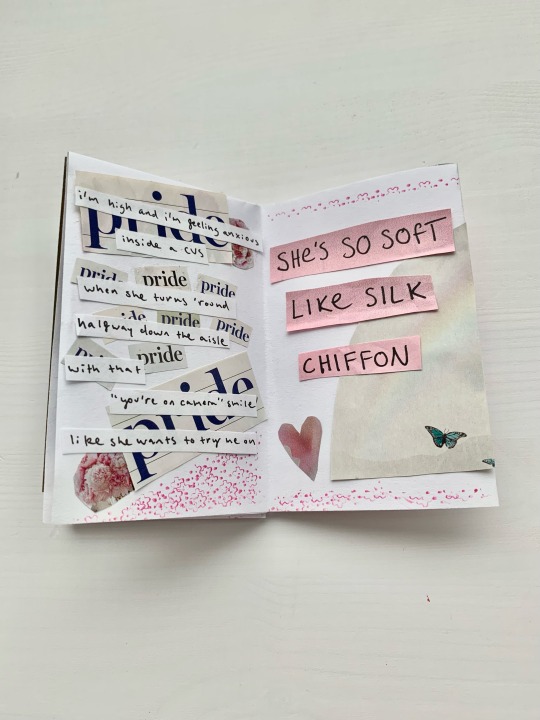 pride
i'm high and i'm feeling anxious
inside a CVS
pride pride pride
when she turns 'round
pride pride
halfway down the aisle
pride
with that
pride
"you're on camera" smile
like she wants to try me on
SHE'S SO SOFT
LIKE SILK
CHIFFON